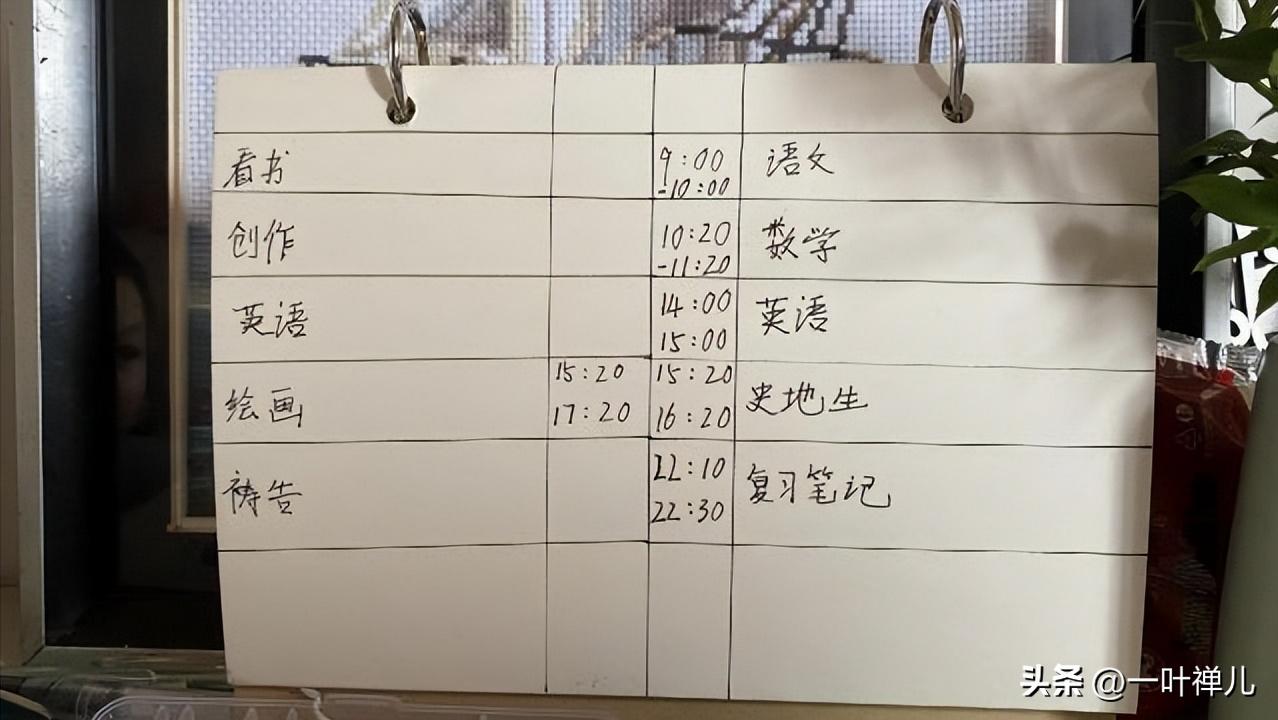 看书 9:00 -10:00 语文
创作 10:20 -11:20 数学
英语 14:00 15:00 英语
绘画 15:20 17:20 15:20 16:20 史地生
祷告 22:10 22:30 复习笔记
头条 @一叶禅儿